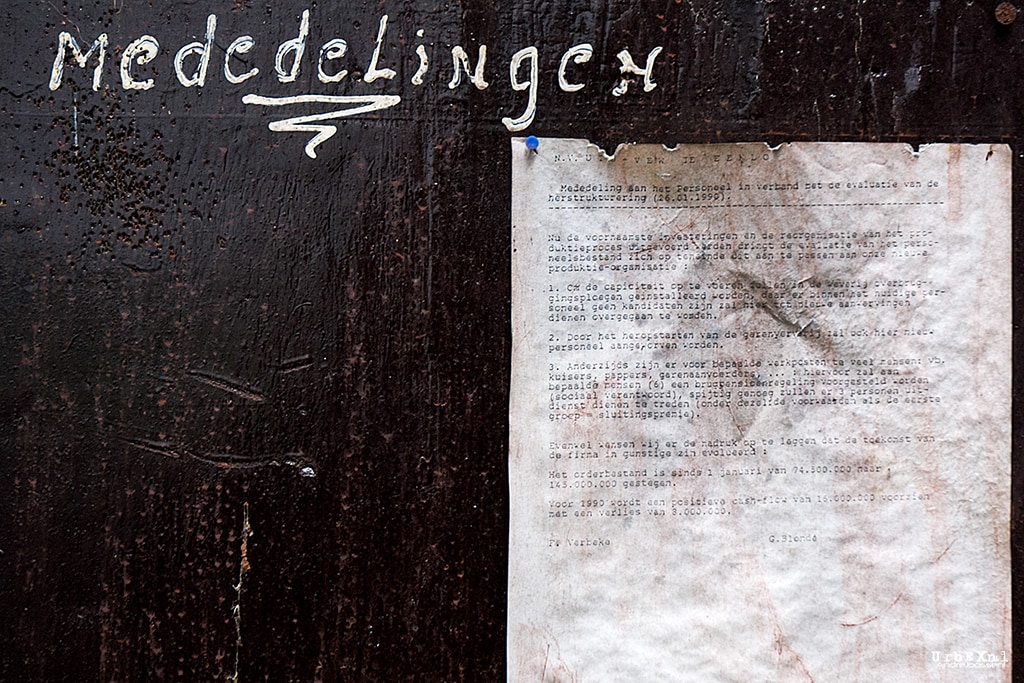 Mededelingen
N.V. EEKLO
Mededeling aan het Personeel in verband met de evaluatie van de
herstrukturering (26.01.1990).
Nu de voornaamste investeringen en de reorganisatie van het pro-
duktieproces uitgevoerd werden dringt de evaluatie van het perso-
neelsbestand zich op teneinde dit aan te passen aan onze nieuwe
produktie-organisatie :
1. Om de capiciteit op te voeren in de weverij overbrug-
gingsploegen geïnstalleerd worden, daar er binnen het huidige per-
soneel geen kandidaten zijn zal hier tot aanwervingen
dienen overgegaan te worden.
2. Door het heropstarten van de garenververij zal ook hier nieuw
personeel aangeworven worden.
3. Anderzijds zijn er voor bepaalde werkposten te veel mensen: vb.
kuisers, pappers, garenaanvoerders. hiervoor zal aan
bepaalde mensen (6) een brugpensioenregeling voorgesteld worden
(sociaal verantwoord), spijtig genoeg zullen er 3 personen uit
dienst dienen te treden (onder dezelfde voorwaarden als de eerste
groep - sluitingspremie).
Evenwel wensen wij er de nadruk op te leggen dat de toekomst van
de firma in gunstige zin evolueerd :
Het orderbestand is sinds 1 januari van 74.500.000 naar
143.000.000 gestegen.
Voor 1990 wordt een positieve cash-flow van 16.000.000 voorzien
met een verlies van 8.000.000.
F. Verbeke G.Blondé
UrbEXnl